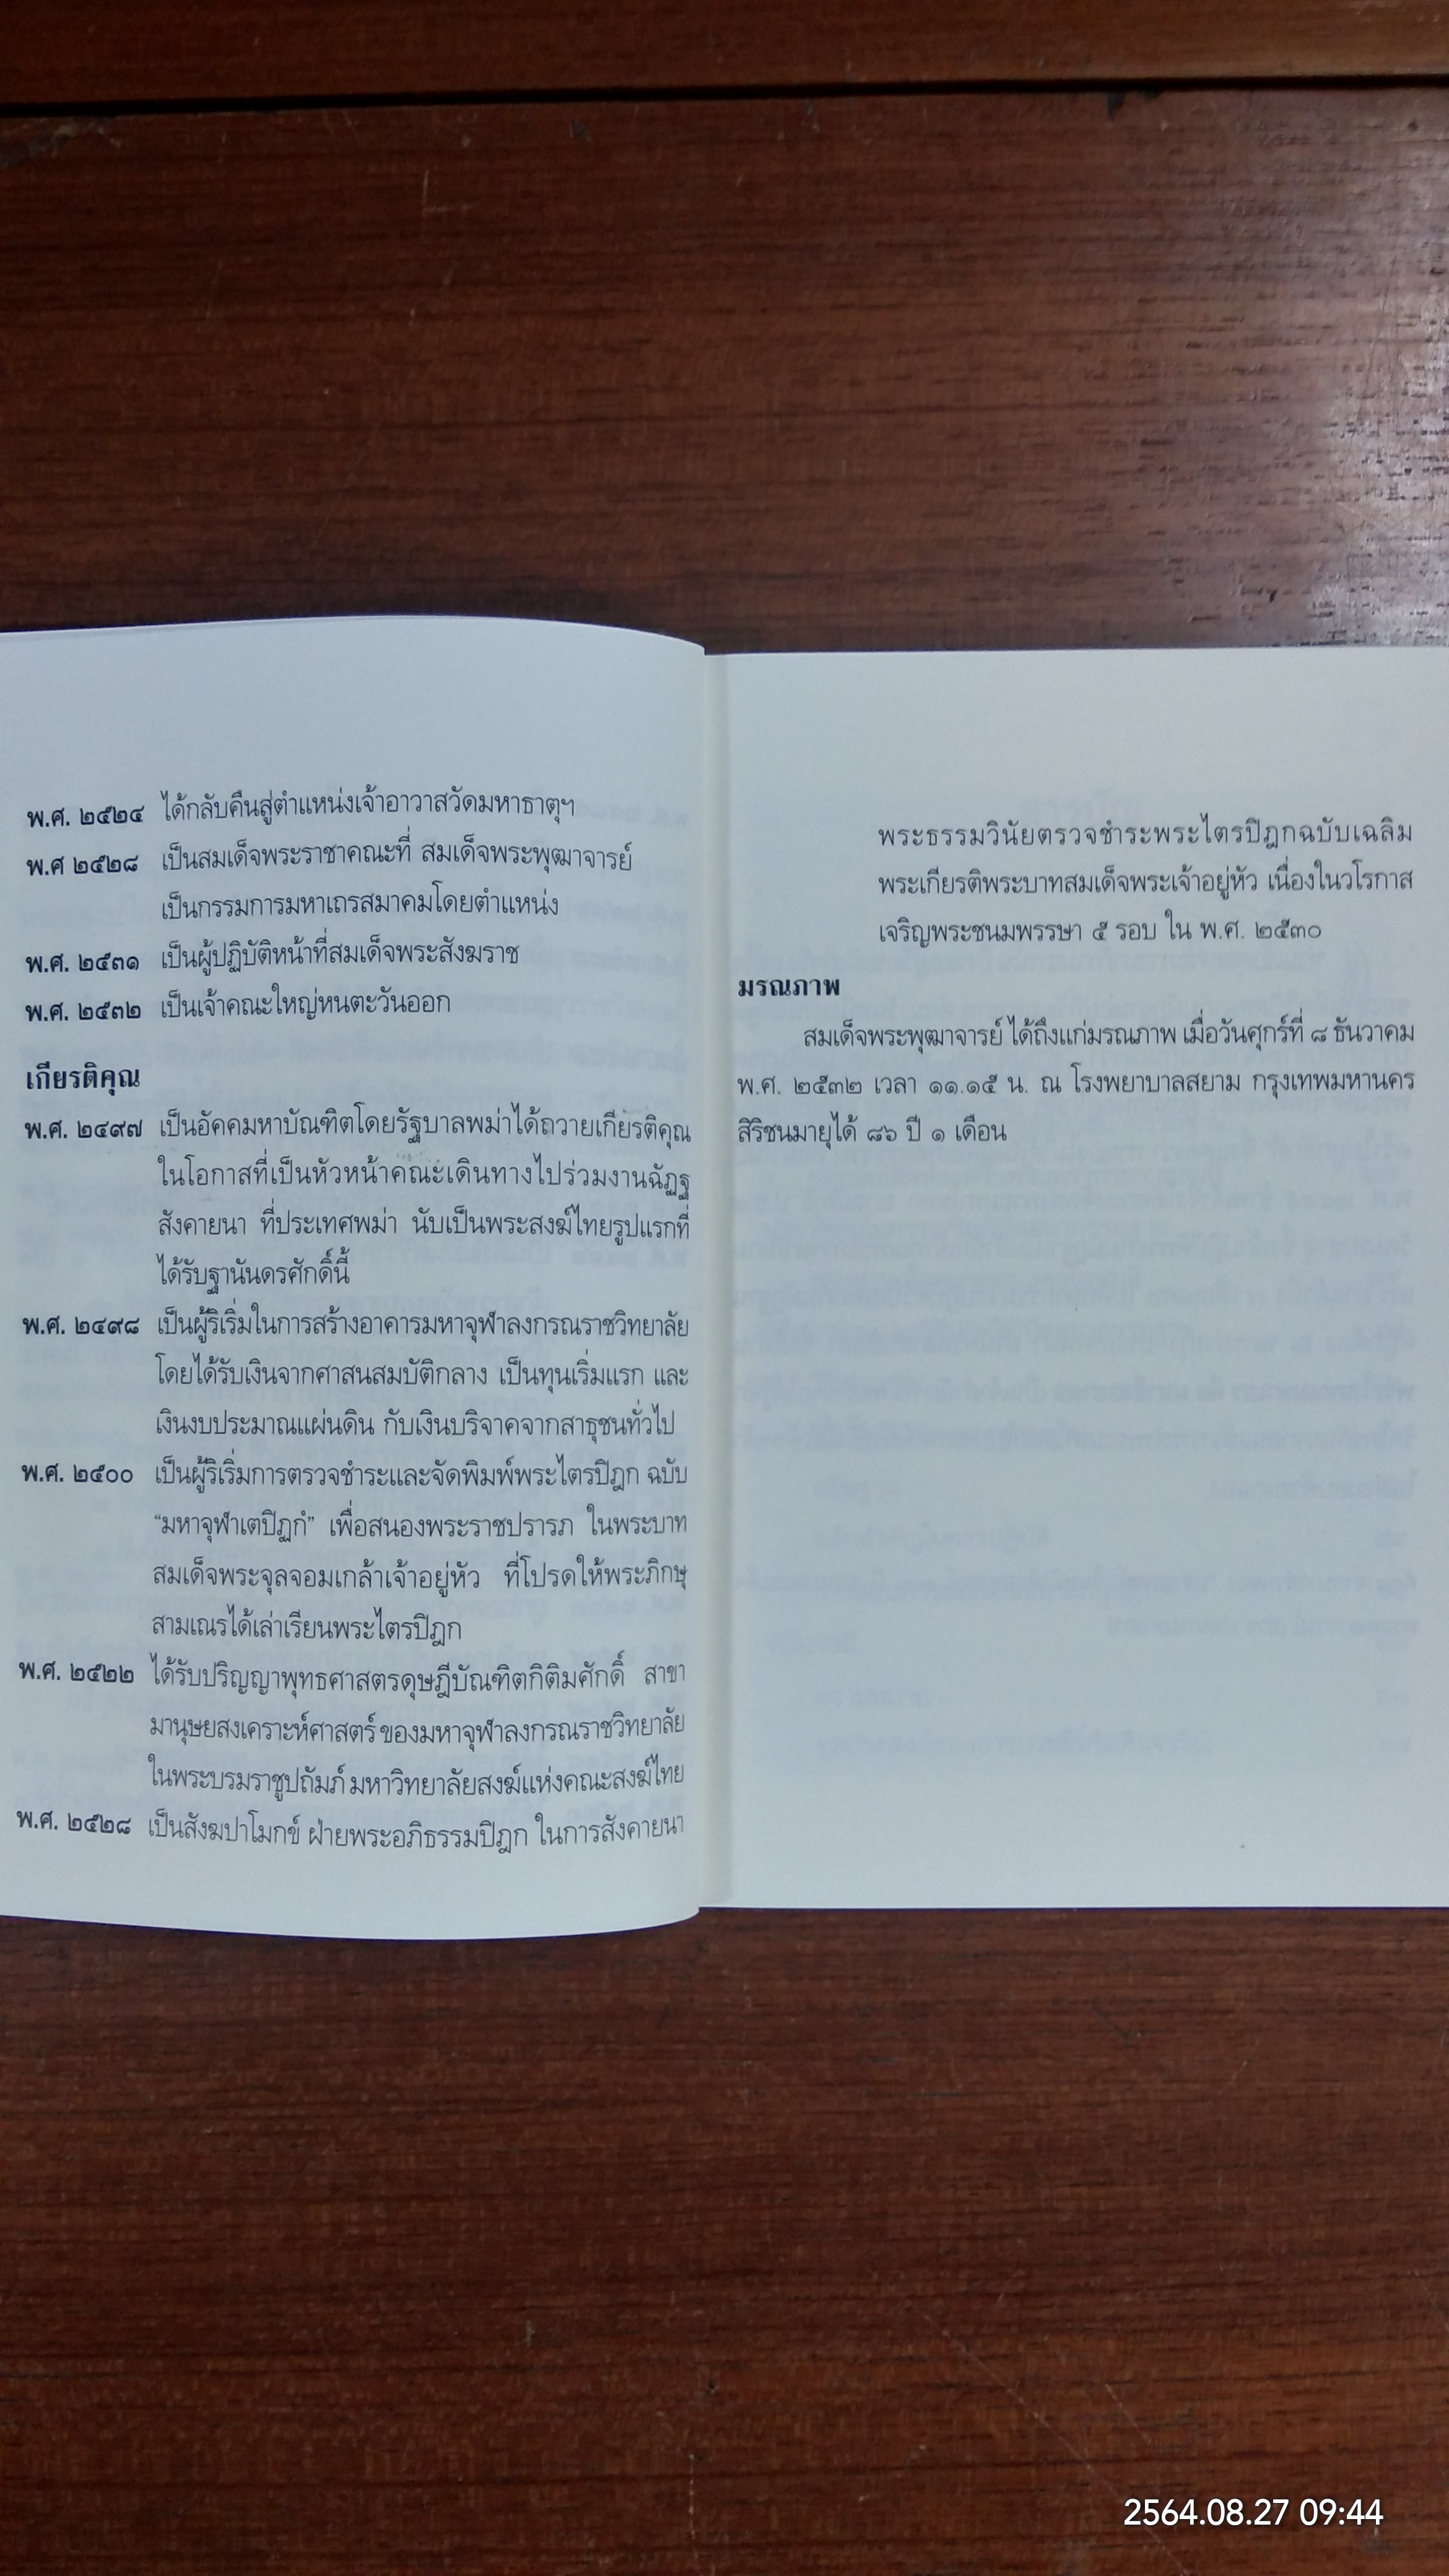 พ.ศ. ๒๕๒๔ ได้กลับคืนสู่ตำแหน่งเจ้าอาวาสวัดมหาธาตุฯ
พ.ศ ๒๕๒๘ เป็นสมเด็จพระราชาคณะที่ สมเด็จพระพุฒาจารย์
เป็นกรรมการมหาเถรสมาคมโดยตำแหน่ง
พ.ศ. ๒๕๓๑ เป็นผู้ปฏิบัติหน้าที่สมเด็จพระสังฆราช
พ.ศ. ๒๕๓๒ เป็นเจ้าคณะใหญ่หนตะวันออก
เกียรติคุณ
พ.ศ. ๒๔๙๗ เป็นอัคคมหาบัณฑิตโดยรัฐบาลพม่าได้ถวายเกียรติคุณ
ในโอกาสที่เป็นหัวหน้าคณะเดินทางไปร่วมงานฉัฏฐ
สังคายนา ที่ประเทศพม่า นับเป็นพระสงฆ์ไทยรูปแรกที่
ได้รับฐานันดรศักดิ์นี้
พ.ศ. ๒๔๙๘ เป็นผู้ริเริ่มในการสร้างอาคารมหาจุฬาลงกรณราชวิทยาลัย
โดยได้รับเงินจากศาสนสมบัติกลาง เป็นทุนเริ่มแรก และ
เงินงบประมาณแผ่นดิน กับเงินบริจาคจากสาธุชนทั่วไป
พ.ศ. ๒๕๐๐ เป็นผู้ริเริ่มการตรวจชำระและจัดพิมพ์พระไตรปิฎก ฉบับ
“มหาจุฬาเตปิฏกํ” เพื่อสนองพระราชปรารภ ในพระบาท
สมเด็จพระจุลจอมเกล้าเจ้าอยู่หัว ที่โปรดให้พระภิกษุ
สามเณรได้เล่าเรียนพระไตรปิฎก
พ.ศ. ๒๕๒๒ ได้รับปริญญาพุทธศาสตรดุษฎีบัณฑิตกิติมศักดิ์ สาขา
มานุษยสงเคราะห์ศาสตร์ ของมหาจุฬาลงกรณราชวิทยาลัย
ในพระบรมราชูปถัมภ์ มหาวิทยาลัยสงฆ์แห่งคณะสงฆ์ไทย
พ.ศ. ๒๕๒๘ เป็นสังฆปาโมกข์ ฝ่ายพระอภิธรรมปิฎก ในการสังคายนา
พระธรรมวินัยตรวจชำระพระไตรปิฎกฉบับเฉลิม
พระเกียรติพระบาทสมเด็จพระเจ้าอยู่หัว เนื่องในวโรกาส
เจริญพระชนมพรรษา ๕ รอบ ใน พ.ศ. ๒๕๓๐
มรณภาพ
สมเด็จพระพุฒาจารย์ ได้ถึงแก่มรณภาพ เมื่อวันศุกร์ที่ ๘ ธันวาคม
พ.ศ. ๒๕๓๒ เวลา ๑๑.๑๕ น. ณ โรงพยาบาลสยาม กรุงเทพมหานคร
สิริชนมายุได้ ๘๖ ปี ๑ เดือน
2564.08.27 09:44